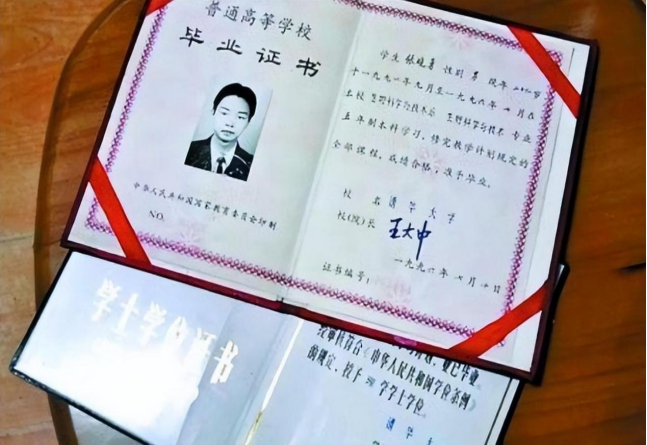 普通高等学校
毕业证书
中华人民共和国国家教育委员会印制
NO.
学生 张晓勇 性别 男 现年 二十三岁
于一九九一年九月至一九九六年七月在
本校 生物科学与技术系 生物科学与技术 专业
五年制本科学习，修完教学计划规定的
全部课程，成绩合格，准予毕业。
校名 清华大学
校(院)长 王大中
一九九六年七月 日
证书编号：
学士学位证书
业已毕业，
经审核符合《中华人民共和国学位条例》
的规定，授予 学学士学位。
清华大